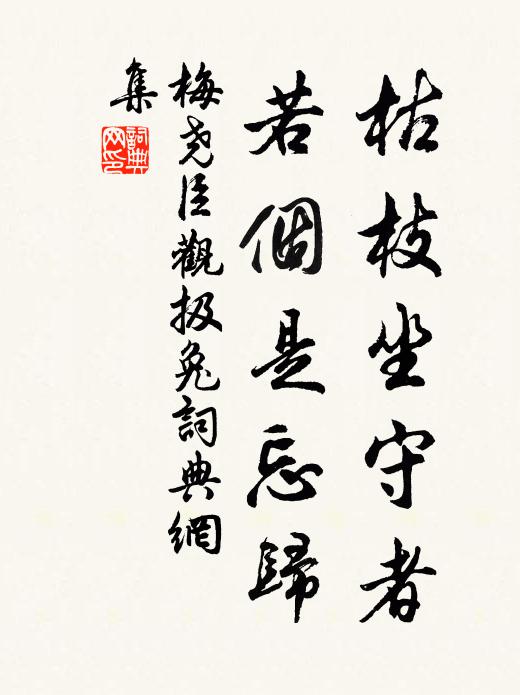 枯枝坐守者
若個是忘歸
梅尧臣觀扱兔詞典網
集
詞典网印